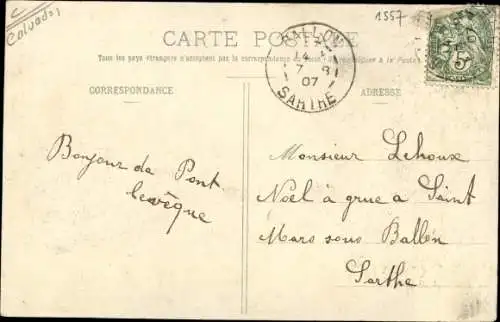 Calvados
1557
CARTE POSTALE
Tous les pays étrangers n'acceptent pas la correspondance au
à la Poste
BALLON
14
7 - 8
07
SARTHE
CORRESPONDANCE
ADRESSE
Bonjour de Pont
levêque
Monsieur Lehoux
Noël à grue à Saint
Mars sous Ballon
Sarthe